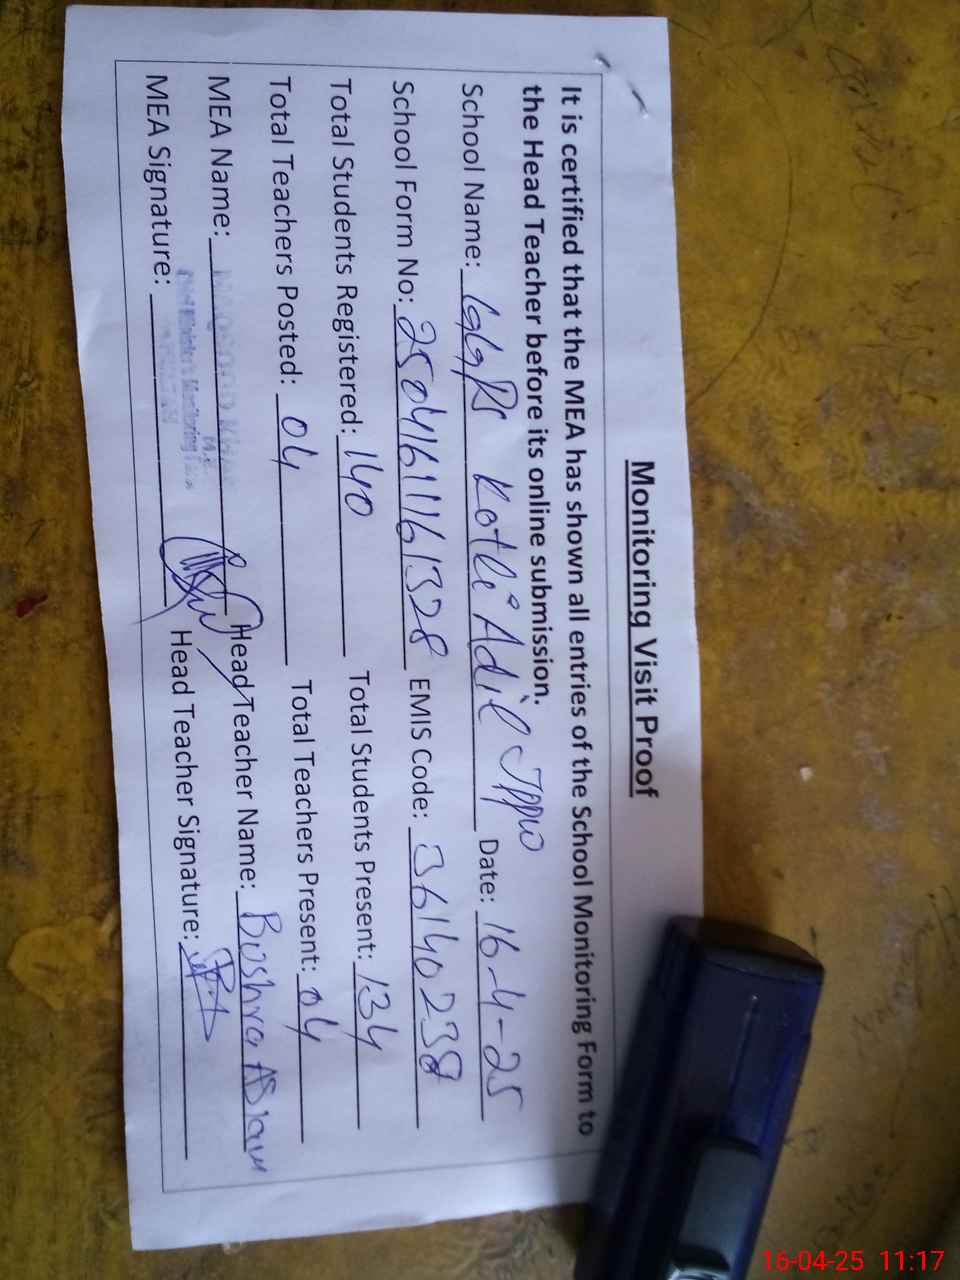 Monitoring Visit Proof
It is certified that the MEA has shown all entries of the School Monitoring Form to
the Head Teacher before its online submission.
School Name: GGPS Kotli Adil Date: 16-4-25
School Form No: 2504161161328 EMIS Code: 36140238
Total Students Registered: 140 Total Students Present: 134
Total Teachers Posted: 04 Total Teachers Present: 04
MEA Name: Head Teacher Name: Bushra Aslam
MEA Signature: Head Teacher Signature:
16-04-25 11:17